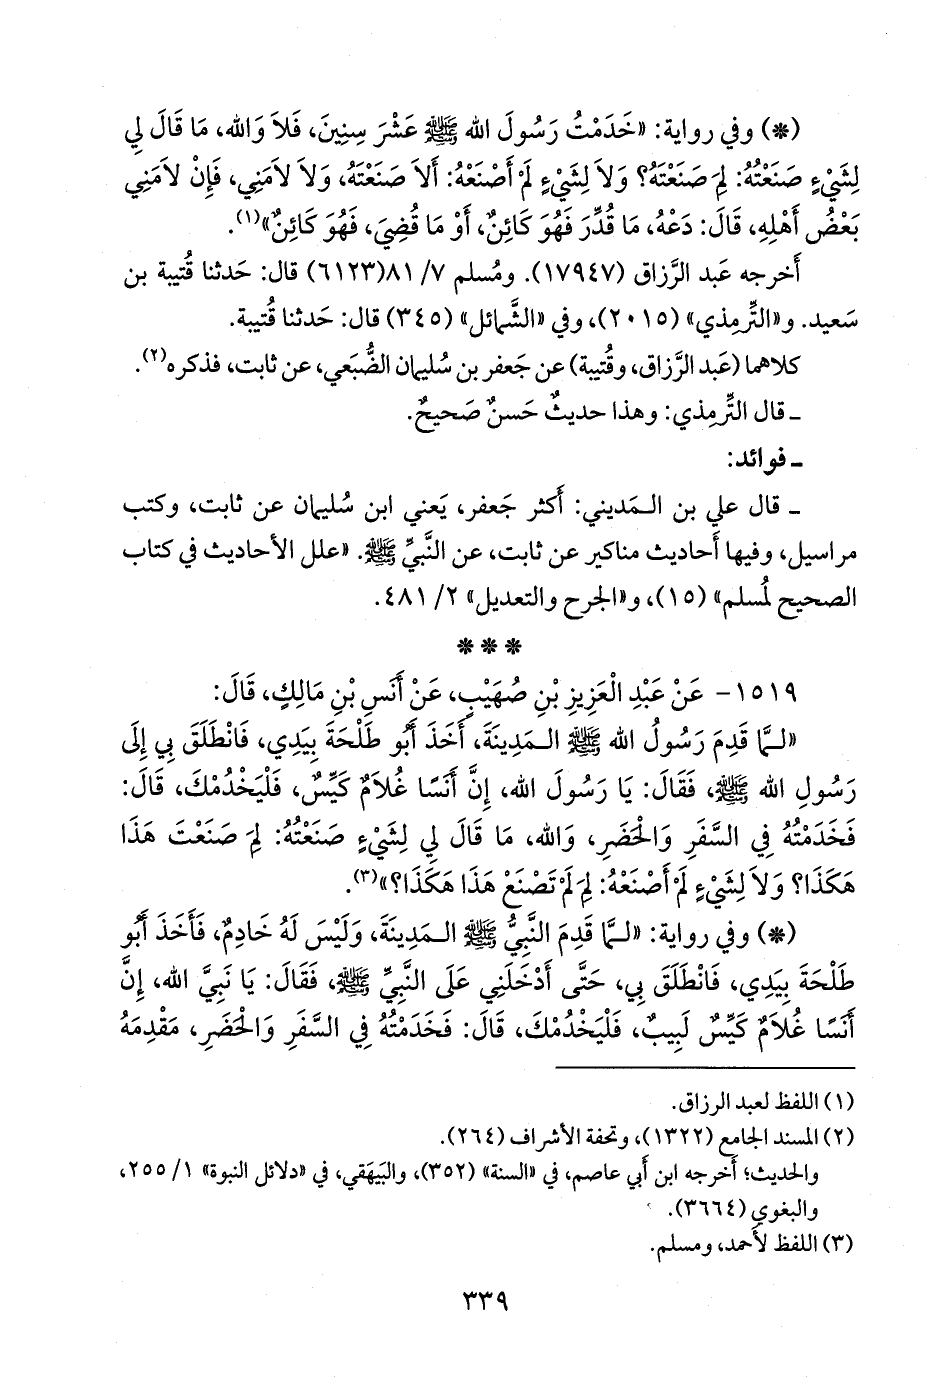 (*) وفي رواية: «خَدَمْتُ رَسُولَ الله ﷺ عَشْرَ سِنِينَ، فَلاَ وَالله، مَا قَالَ لِي
لِشَيْءٍ صَنَعْتُهُ: لِمَ صَنَعْتَهُ؟ وَلاَ لِشَيْءٍ لَمْ أَصْنَعْهُ: أَلاَ صَنَعْتَهُ، وَلاَ لاَمَنِي، فَإِنْ لاَمَنِي
بَعْضُ أَهْلِهِ، قَالَ: دَعْهُ، مَا قُدِّرَ فَهُوَ كَائِنٌ، أَوْ مَا قُضِيَ، فَهُوَ كَائِنٌ»(١).
أَخرجه عَبد الرَّزاق (١٧٩٤٧). ومُسلم ٧/ ٨١(٦١٢٣) قال: حَدثنا قُتيبة بن
سَعيد. و«التِّرمِذي» (٢٠١٥)، وفي «الشَّمائل» (٣٤٥) قال: حَدثنا قُتيبة.
كلاهما (عَبد الرَّزاق، وقُتيبة) عن جَعفر بن سُليمان الضُّبَعي، عن ثابت، فذكره(٢).
ـ قال التِّرمِذي: وهذا حديثٌ حَسنٌ صَحيحٌ.
ـ فوائد:
ـ قال علي بن المديني: أَكثر جَعفر، يَعني ابن سُليمان عن ثابت، وكتب
مراسيل، وفيها أَحاديث مناكير عن ثابت، عن النَّبيِّ ﷺ. «علل الأحاديث في كتاب
الصحيح لمُسلم» (١٥)، و«الجرح والتعديل» ٢/ ٤٨١.
* * *
١٥١٩- عَنْ عَبْدِ الْعَزِيزِ بْنِ صُهَيْبٍ، عَنْ أَنَسِ بْنِ مَالِكٍ، قَالَ:
«لَمَّا قَدِمَ رَسُولُ الله ﷺ الـمَدِينَةَ، أَخَذَ أَبُو طَلْحَةَ بِيَدِي، فَانْطَلَقَ بِي إِلَى
رَسُولِ الله ﷺ، فَقَالَ: يَا رَسُولَ الله، إِنَّ أَنَسًا غُلاَمٌ كَيِّسٌ، فَلْيَخْدُمْكَ، قَالَ:
فَخَدَمْتُهُ فِي السَّفَرِ وَالْحَضَرِ، وَالله، مَا قَالَ لِي لِشَيْءٍ صَنَعْتُهُ: لِمَ صَنَعْتَ هَذَا
هَكَذَا؟ وَلاَ لِشَيْءٍ لَمْ أَصْنَعْهُ: لِمَ لَمْ تَصْنَعْ هَذَا هَكَذَا؟»(٣).
(*) وفي رواية: «لَمَّا قَدِمَ النَّبِيُّ ﷺ الـمَدِينَةَ، وَلَيْسَ لَهُ خَادِمٌ، فَأَخَذَ أَبُو
طَلْحَةَ بِيَدِي، فَانْطَلَقَ بِي، حَتَّى أَدْخَلَنِي عَلَى النَّبِيِّ ﷺ، فَقَالَ: يَا نَبِيَّ الله، إِنَّ
أَنَسًا غُلاَمٌ كَيِّسٌ لَبِيبٌ، فَلْيَخْدُمْكَ، قَالَ: فَخَدَمْتُهُ فِي السَّفَرِ وَالْحَضَرِ، مَقْدِمَهُ
(١) اللفظ لعبد الرزاق.
(٢) المسند الجامع (١٣٢٢)، وتحفة الأشراف (٢٦٤).
والحديث؛ أخرجه ابن أبي عاصم، في «السنة» (٣٥٢)، والبَيهَقي، في «دلائل النبوة» ١/ ٢٥٥،
والبغوي (٣٦٦٤).
(٣) اللفظ لأحمد، ومسلم.
٣٣٩